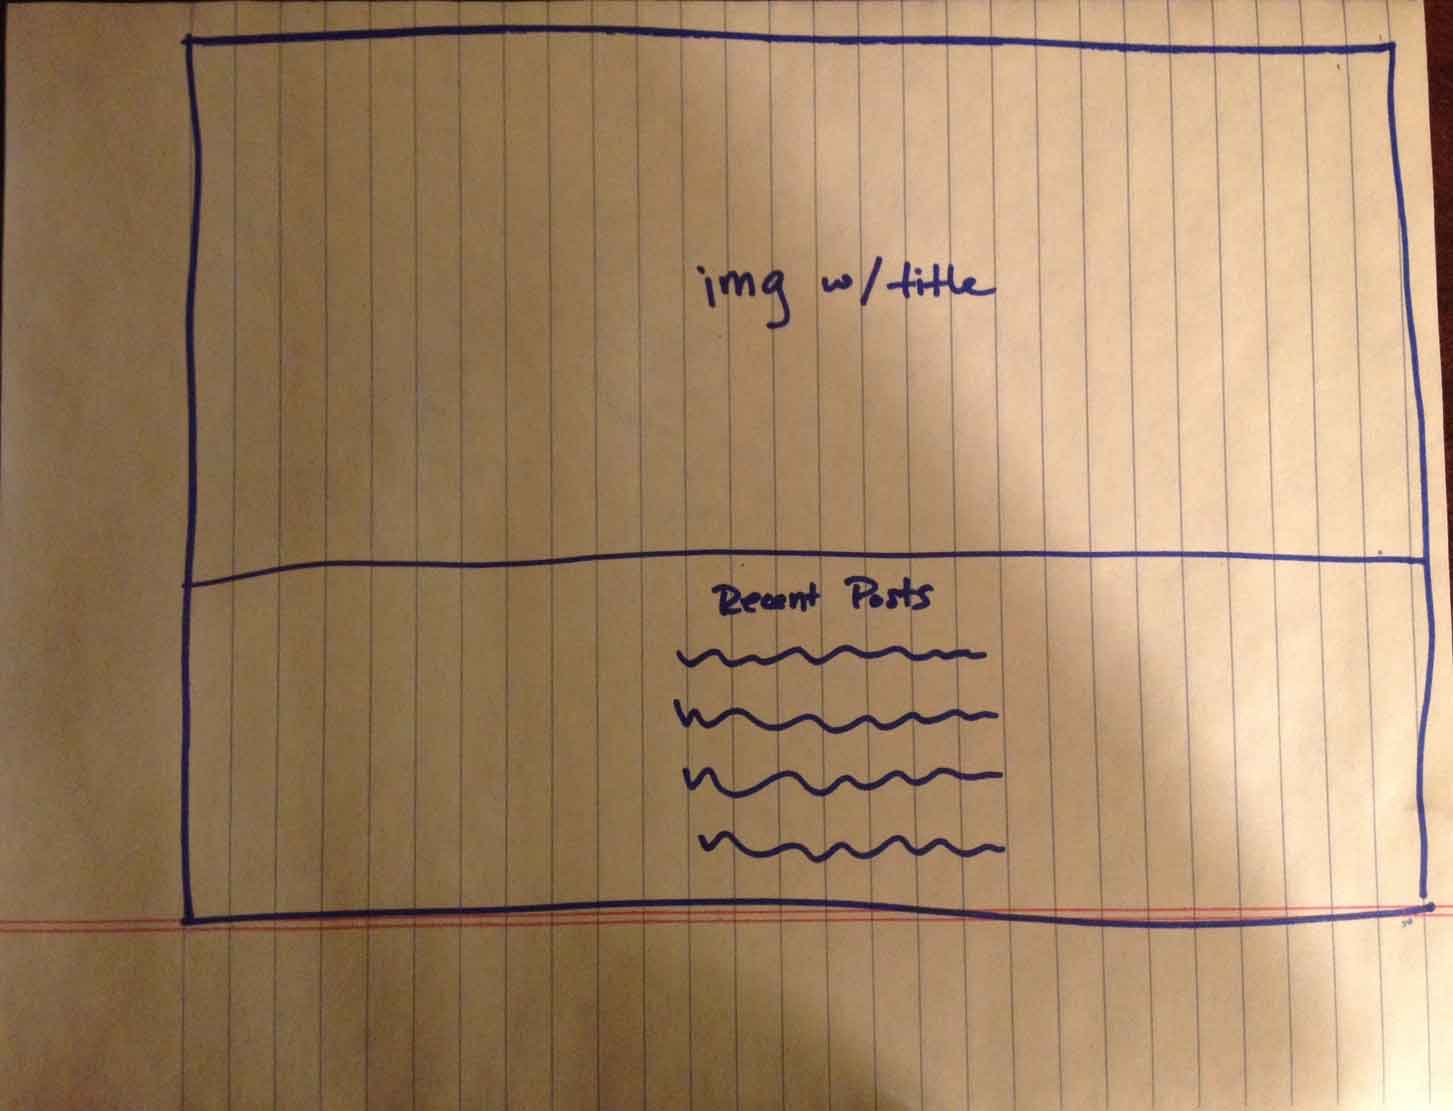 img w/ title
Recent Posts